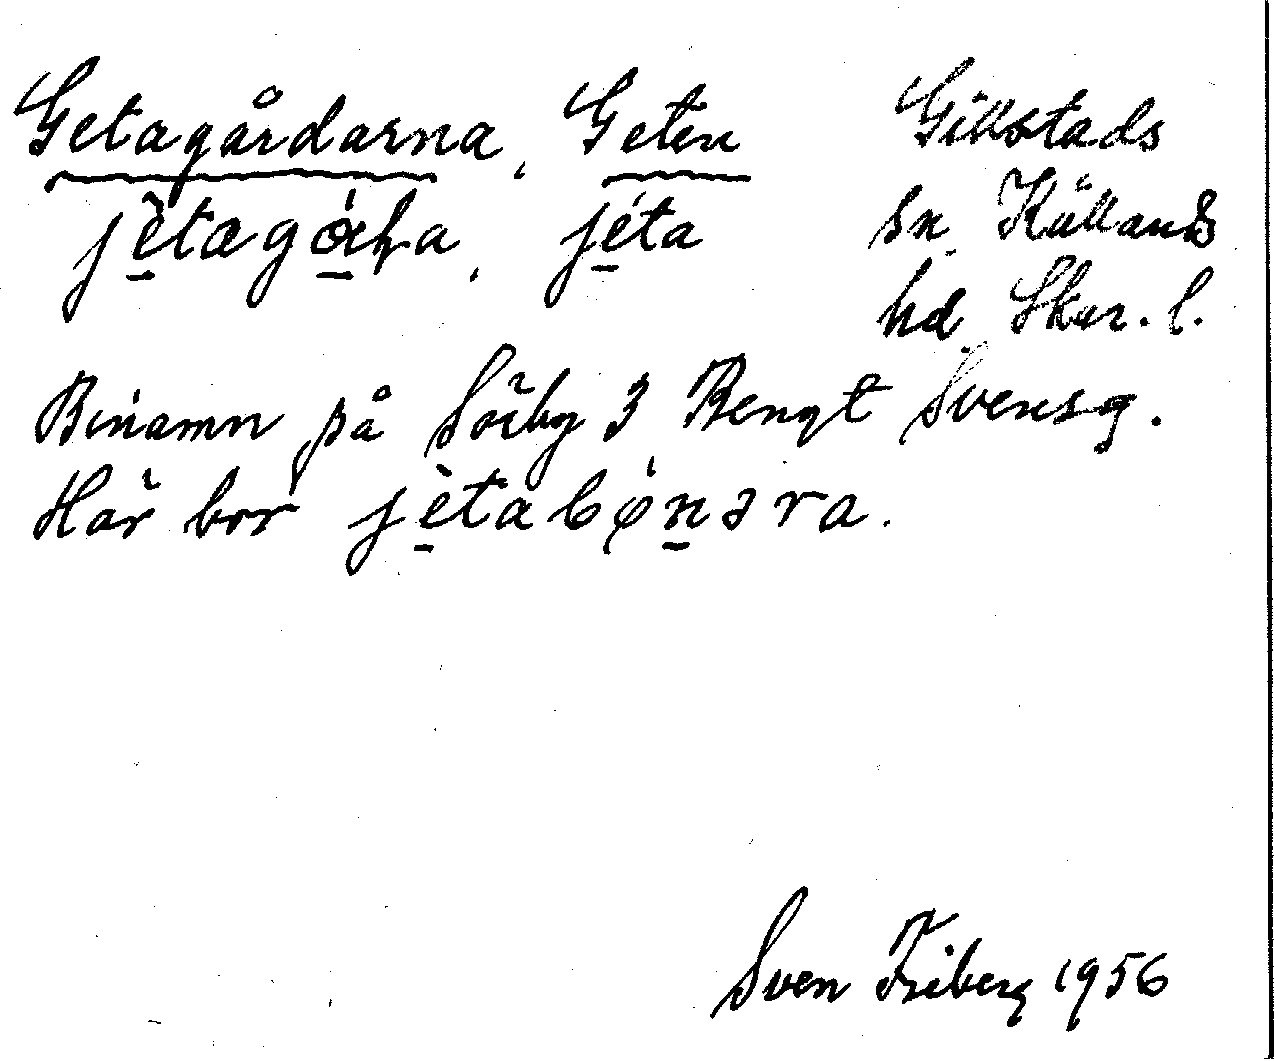 Getagårdarna, Geten
jètagǻɳa, jéta
Gillstads
sn, Kållands
hd, Skar. l.
Binamn på Sörby 3 Bengt Svensg.
Här bor jètabónəra.
Sven Friberg 1956